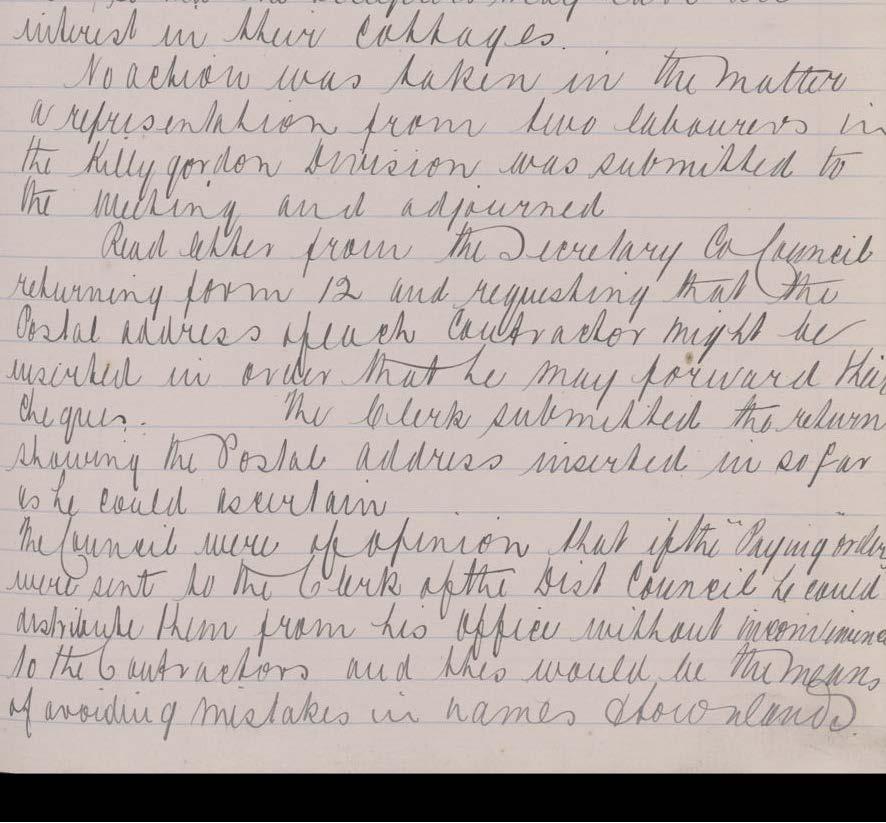 may have an
interest in their cottages.
No action was taken in the matter
a representation from two labourers in
the Killygordon Division was submitted to
the meeting and adjourned
Read letter from the Secretary Co Council
returning form 12 and requesting that the
Postal address of each Contractor might be
inserted in order that he may forward their
cheques. The Clerk submitted the return
showing the Postal address inserted in so far
as he could ascertain
The Council were of opinion that if the "Paying" order
were sent to the Clerk of the Dist Council he could
distribute them from his office without inconvenience
to the Contractors and this would be the means
of avoiding mistakes in names & townlands.